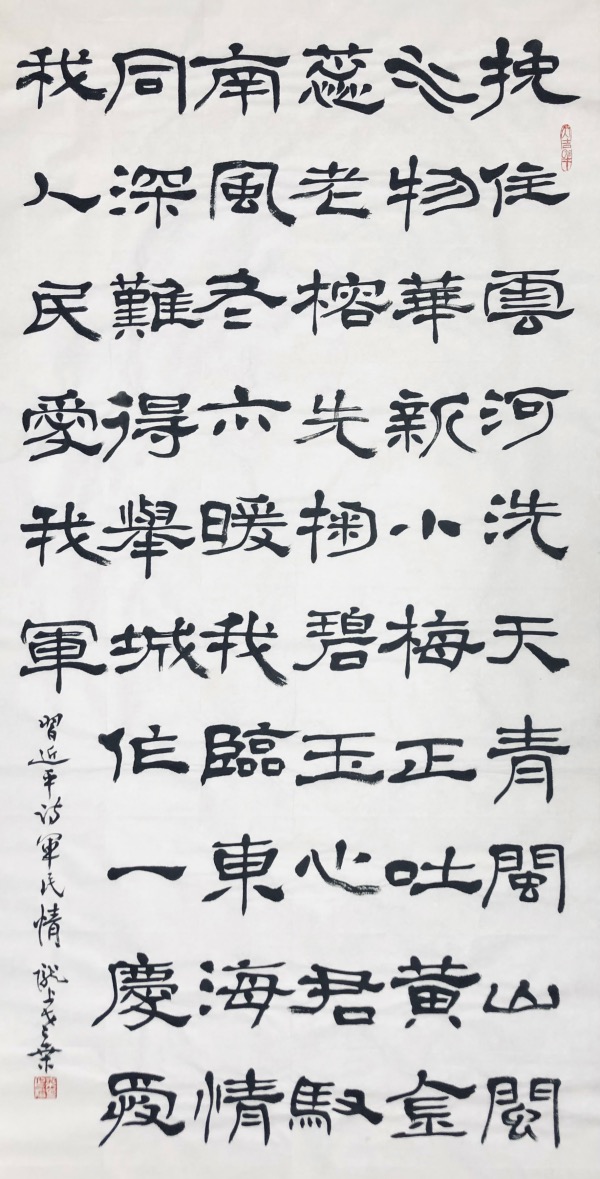 挽住雲河洗天青閩山閩
水物華新小梅正吐黃金
蕊老榕先掬碧玉心君馭
南風冬亦暖我臨東海情
同深難得舉城作一慶愛
我人民愛我軍
習近平诗軍民情 隴上老